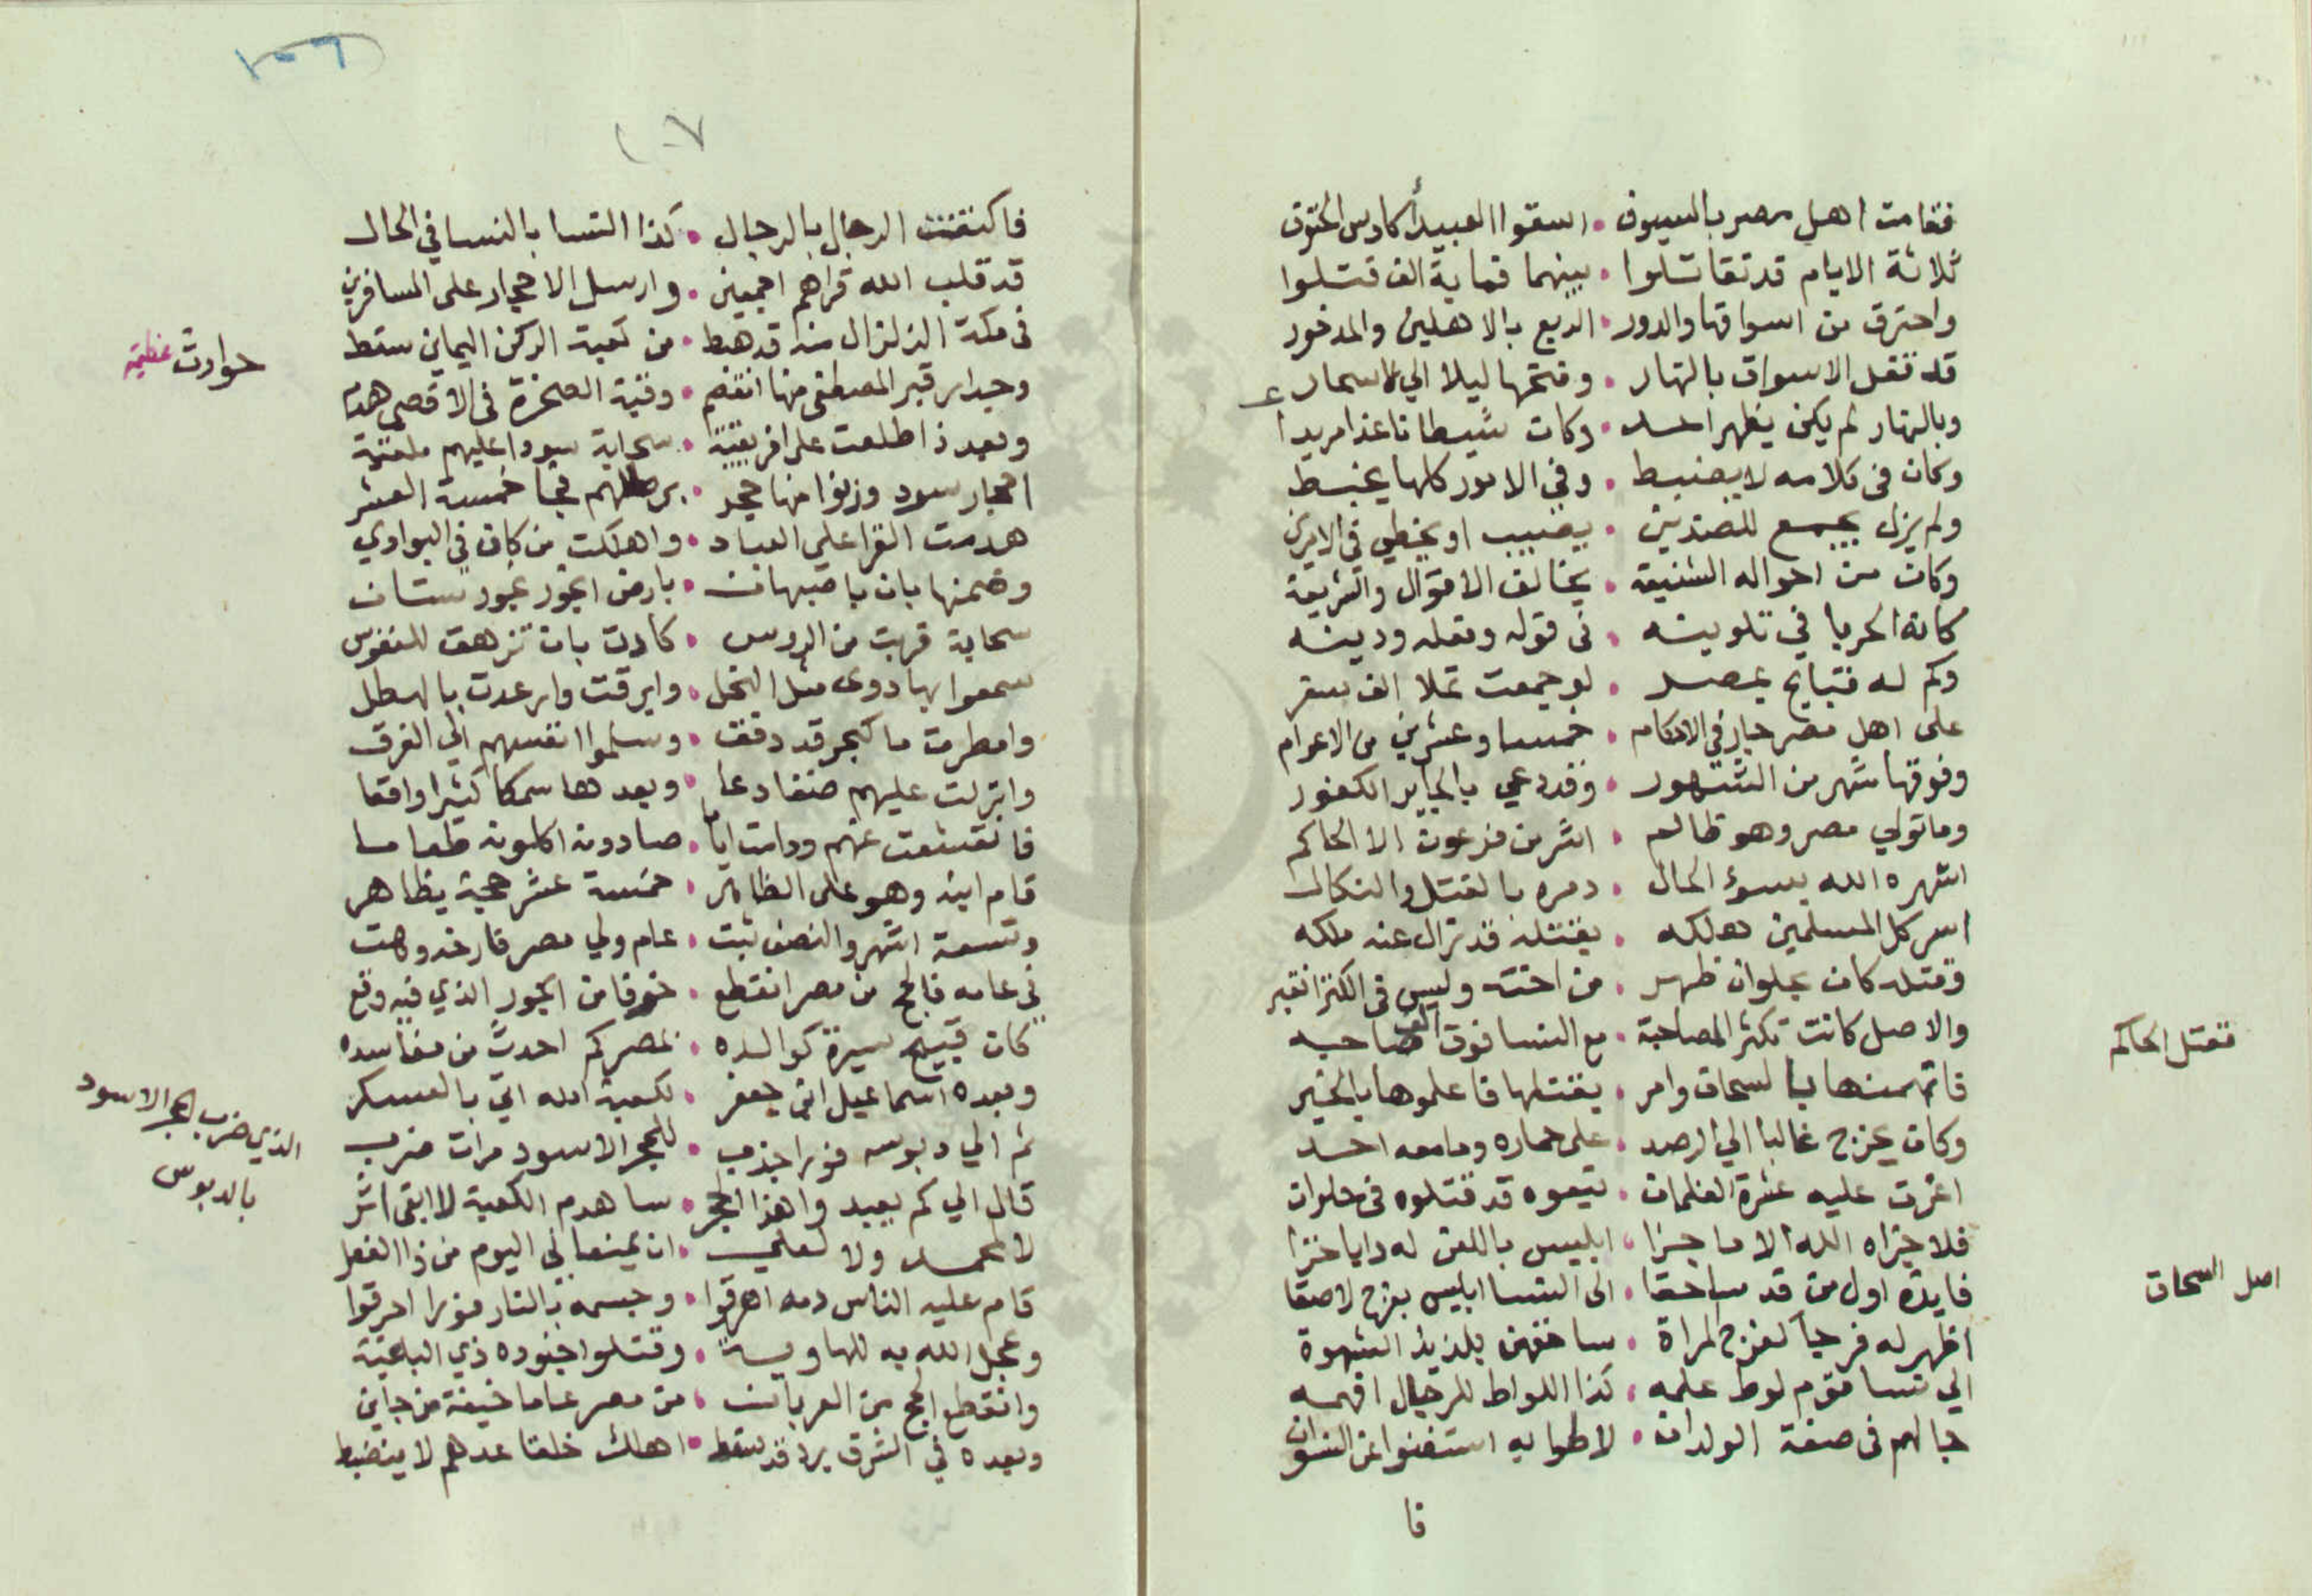 فقامت اهل مصر بالسيوف • اسقوا العبيد أكادس الحتوف
ثلاثة الايام قد تقاتلوا • بينهما قماية الف قتلوا
واحترق من اسواقها والدور • الربع بالاهلين والمدخور
قد تقفل الاسواق بالنهار • وفتحها ليلا الي الاسحار
وبالنهار لم يكن يظهر احد • وكان شيطانا غدا مريدا
وكان في كلامه لا ينضبط • وفي الامور كلها يختبط
ولم يزل يجمع للضدين • يصيب او يخطي في الامرين
وكان من احواله الشنيعة • يخالف الاقوال والشريعة
كانه الحربا في تلوينه • في قوله وفعله ودينه
وكم له قبايح بمصر • لو جمعت تملا الف سفر
على اهل مصر جار في الاحكام • خمسا وعشرين من الاعوام
وفوقها شهر من الشهور • وقد دعي بالجاير الكفور
وما تولي مصر وهو ظالم • اشر من فرعون الا الحاكم
اشهره الله بسوء الحال • دمره بالقتل والنكال
اسر كل المسلمين هلكه • بقتله قد زال عنه ملكه
وقتله كان بحلوان ظهر • من اخته وليس في الكنز انقبر
والاصل كانت تكثر المصاحبة • مع النسا فوق الف صاحبه
فاتهمنها بالسحاق وامر • بقتلها فاعلموها بالخبر
وكان يخرج غالبا الي الرصد • على حماره وما معه احد
اغرت عليه عشرة الغلمان • تبعوه قد قتلوه في حلوان
فلا جزاه الله الا ما جزا • ابليس باللعن له دايا خزا
فايدة اول من قد ساحقا • الى النسا ابليس بفرج لاصقا
اظهر له فرجا كفرج المراة • ساحقهن بلذيذ الشهوة
الي نسا قوم لوط علمه • كذا اللواط للرجال افهمه
جا لهم في صفة الولدان • لاطوا به استغنوا عن النسوان
فا
قتل الحاكم
اصل السحاق
١٠٦
١٠٧
فاكتفت الرجال بالرجال • كذا النسا بالنسا في الحال
قد قلب الله قراهم اجمعين • وارسل الاحجار على المسافرين
في مكة الزلزال منه قد هبط • من كعبة الركن اليماني سقط
وجدار قبر المصطفى منها انفصم • وقبة الصخرة في الاقصى هدم
وبعد ذا طلعت على افريقية • سحابة سودا عليهم ملقية
احجار سود وزنوا منها حجر • برطلهم فجا خمسة العشر
هدمت القرا على العباد • واهلكت من كان في البوادي
وضمنها بان باصبهان • بارض الجوز بجوزستان
سحابة قربت من الروس • كادت بان تزهق للنفوس
سمعوا بها دوى مثل النحل • وابرقت وارعدت بالهطل
وامطرت ما كبحر قد دفق • وسلموا انفسهم الي الغرق
وانزلت عليهم ضفادعا • وبعدها سمكا كثيرا واقعا
فانقشعت عنهم ودامت اياما • صادونه اكلونه طعاما
قام ابنه وهو على الظاهر • خمسة عشر حجة يظاهر
وتسعة اشهر والنصف ثبت • عام ولي مصر فارخه وهت
في عامه فالحج من مصر انقطع • خوفا من الجور الذي فيه وقع
كان قبيح سيرة كوالده • بمصر كم احدث من مفاسده
وبعده اسماعيل ابن جعفر • لكعبة الله اتي بالعسكر
ثم الي دبوسه فورا جذب • للحجر الاسود مرات ضرب
قال الي كم يعبد وا هذا الحجر • ساهدم الكعبة لا ابقى اثر
لا لمحمد ولا لعلي • ان يمنعا لي اليوم من ذا الفعل
قام عليه الناس دمه اهرقوا • وجسمه بالنار فورا احرقوا
وعجل الله به للهاوية • وقتلوا جنوده ذي الباغية
وانقطع الحج من العربان • من مصر عاما خيفة من جاني
وبعده في الشرق برد قد سقط • اهلك خلقا عدهم لا ينضبط
حوادث عظيمه
الذي ضرب الحجر الاسود
بالدبوس